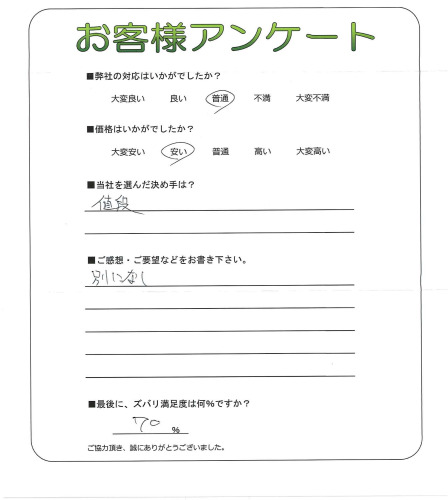 お客様アンケート
■弊社の対応はいかがでしたか？
大変良い 良い 普通 不満 大変不満
■価格はいかがでしたか？
大変安い 安い 普通 高い 大変高い
■当社を選んだ決め手は？
値段
■ご感想・ご要望などをお書き下さい。
別になし
■最後に、ズバリ満足度は何%ですか？
70 %
ご協力頂き、誠にありがとうございました。